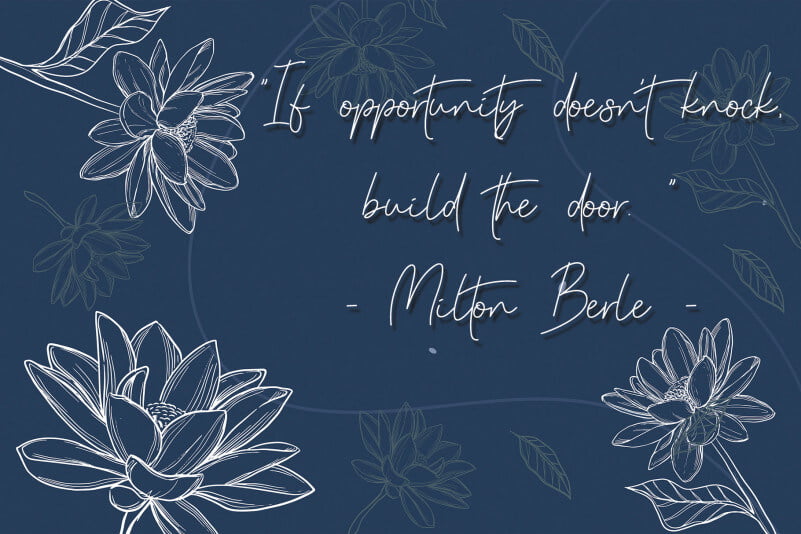 "If opportunity doesn't knock,
build the door. "
- Milton Berle -